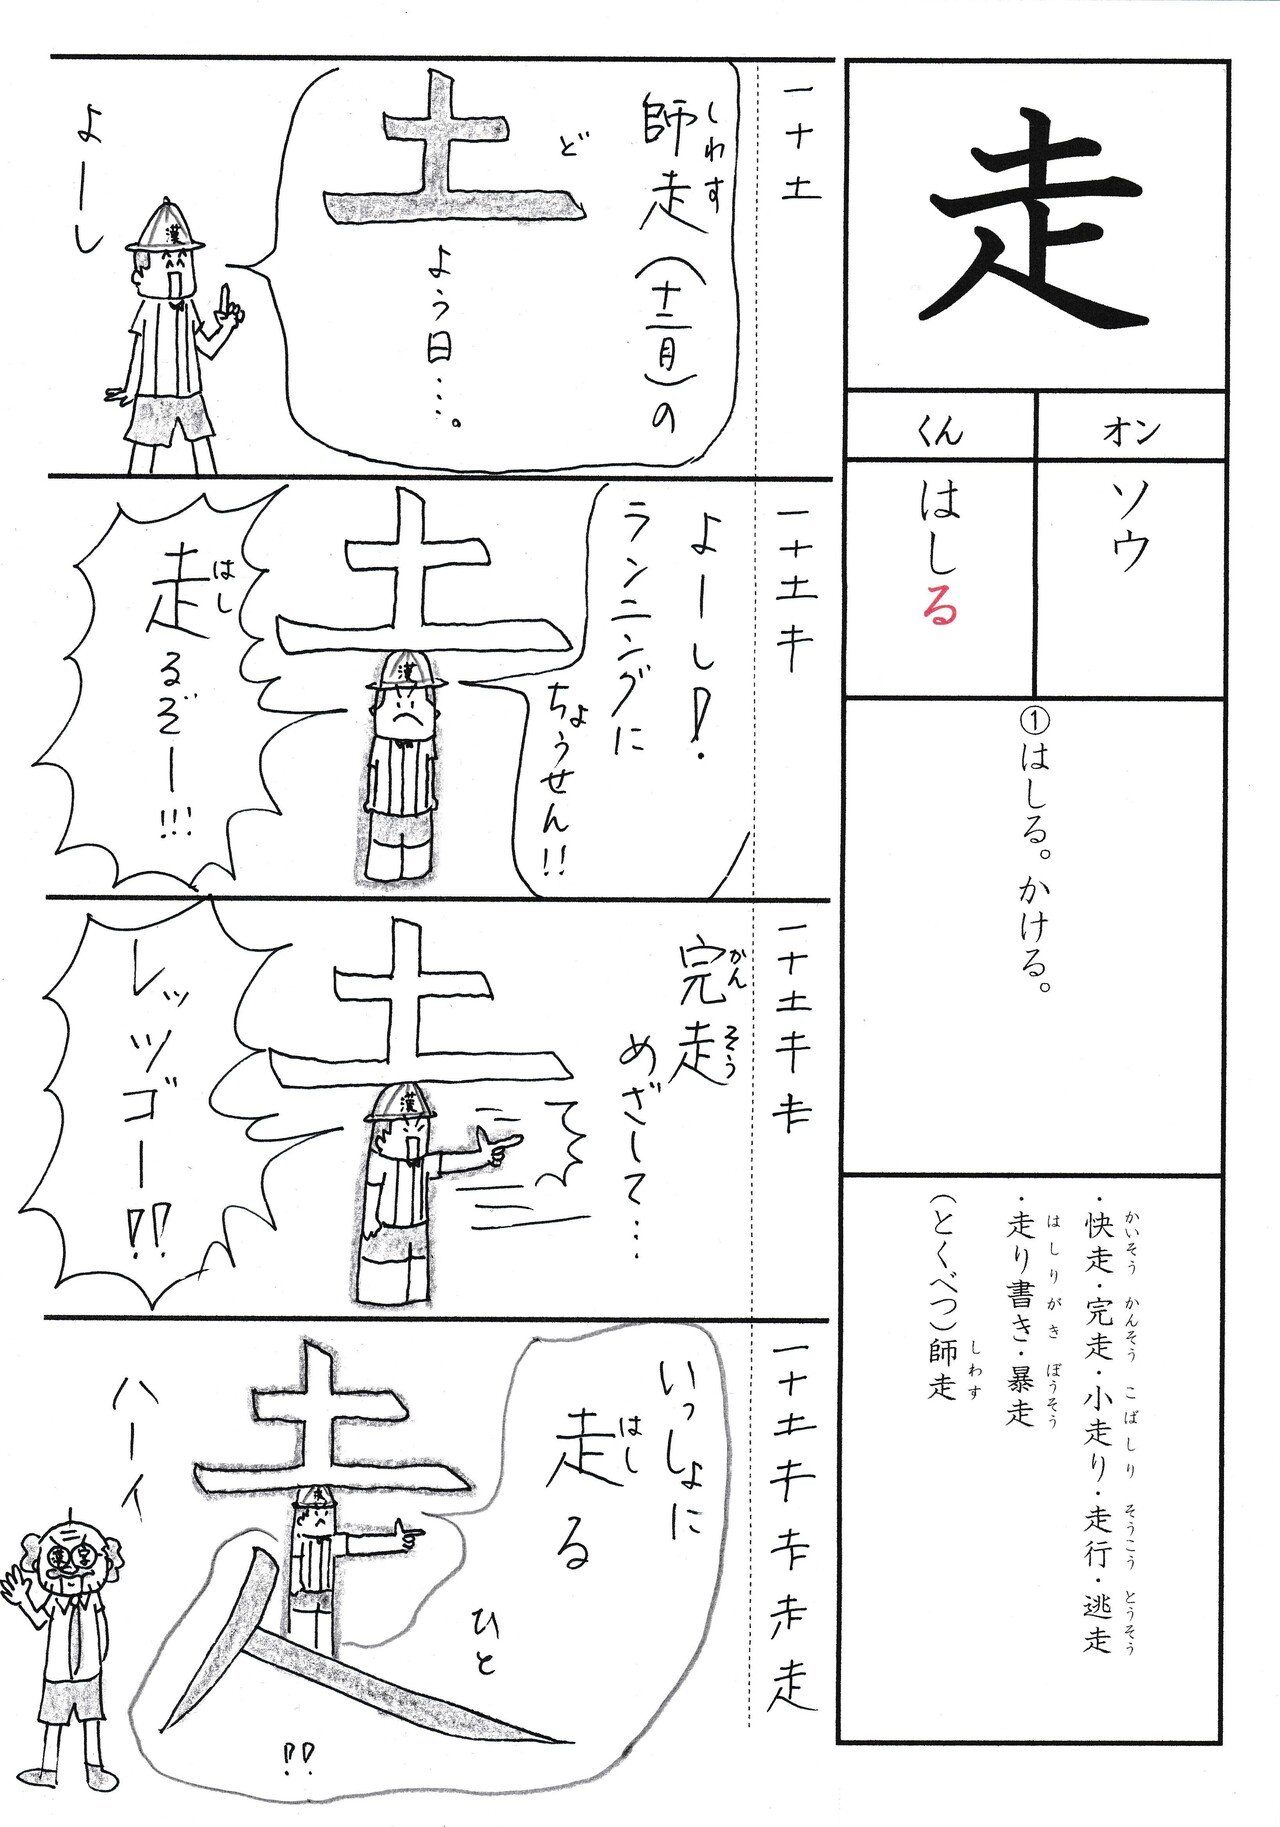 走
オン
くん
ソウ
はしる
①はしる。かける。
・快走・完走・小走り・走行・逃走
かいそう かんそう こばしり そうこう とうそう
・走り書き・暴走
はしりがき ぼうそう
(とくべつ)師走
しわす
一十土
師走(十二月)の
しわす
土
ど
よう日…。
よーし
一十土キ
よーし!
ランニングに
ちょうせん!!
走るぞー!!!
はし
漢
一十土キ
完走
かんそう
めざして…
レッツゴー!!
漢
一十土キ
走
いっしょに
走る
はし
ひと
!!
ハーイ
漢字